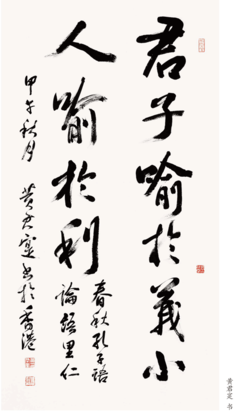 君子喻於義小
人喻於利
春秋孔子語
論語里仁
甲午秋月 黃君寔書於香港
黃君寔 书